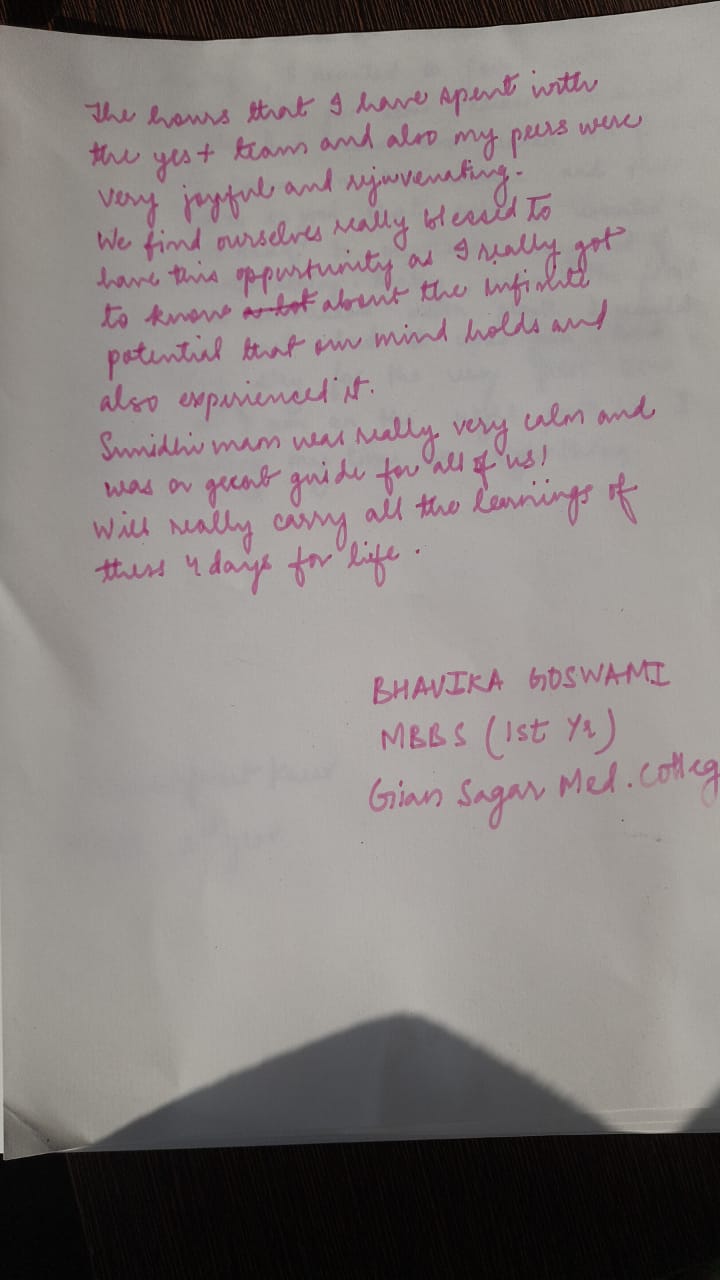 The hours that I have spent with
the yes+ team and also my peers were
very joyful and rejuvenating.
We find ourselves really blessed To
have this oppurtunity as I really got
to know a lot about the infinite
potential that our mind holds and
also experienced it.
Sumidhi mam was really very calm and
was a great guide for all of us!
Will really carry all the learnings of
these 4 days for life.
BHAVIKA GOSWAMI
MBBS (1st Yr)
Gian Sagar Med. Colleg